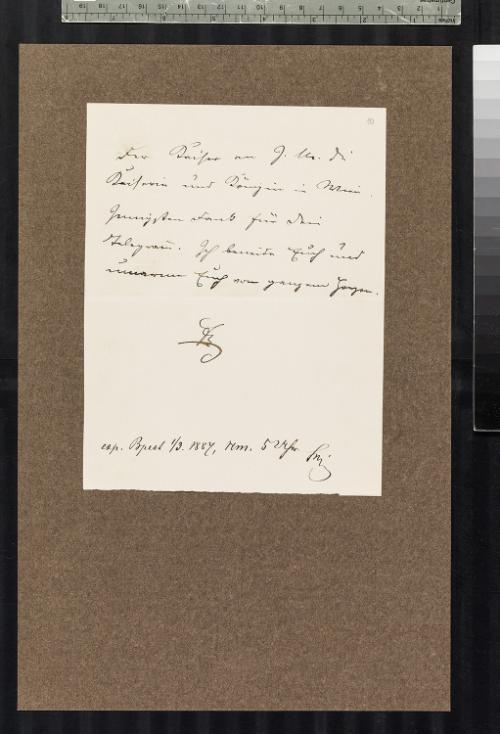 10
Der Kaiser an I. M. die
Kaiserin und Königin in Wien.
Innigsten Dank für Dein
Telegram̄. Ich beneide Euch und
umarme Euch von ganzem Herzen.
exp. Bpest 1/3. 1887, Nm. 5 Uhr